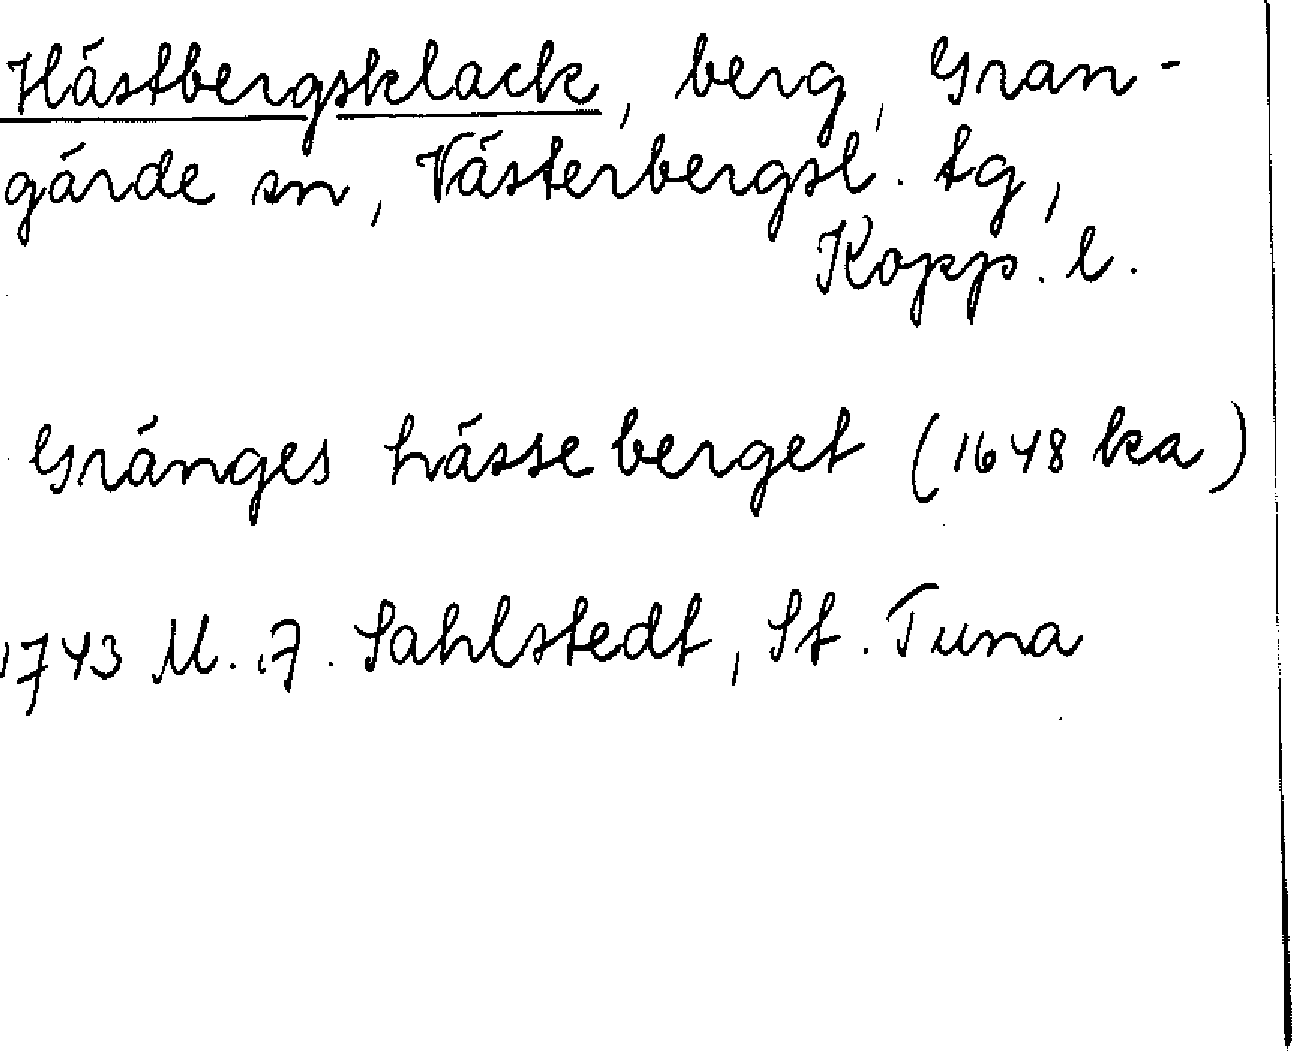 Hästbergsklack, berg, Gran-
gärde sn, Västerbergsl. tg,
Kopp. l.
Gränges hässe berget (1648 ka)
1743 M. A. Sahlstedt, St. Tuna